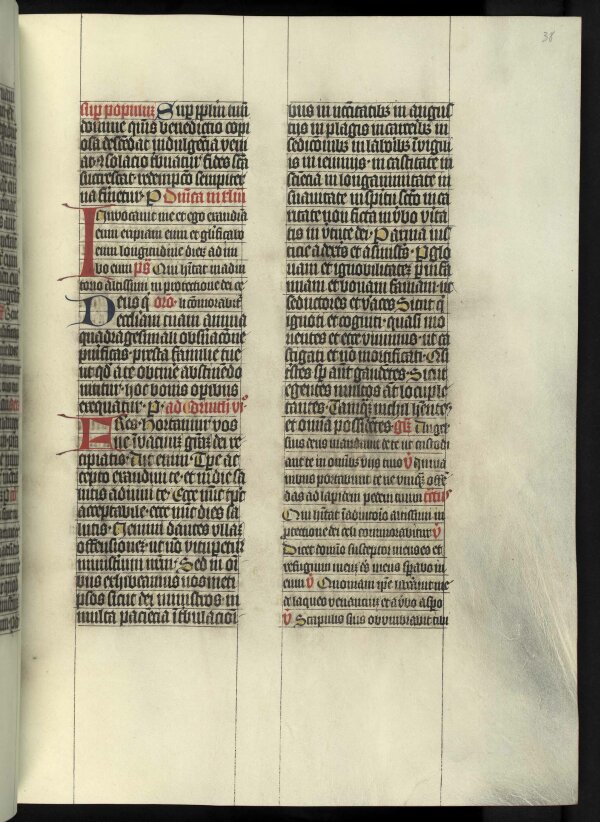 38
sup populum Sup ppłm tuū
domine q̄s benedictio copi
osa descēdat indulgētia veni
at ꝯsolacio tribuatur fides sc̄a
succrescat redempcō sempiter
na firmetur
Inuocauit me et ego exaudiā
eum eripiam eum et glīficabo
eum longitudine dierū adim
plebo eum ps̄ Qui hītat in adiu
torio altissimi in protectione dei ce
Deus q̄ oro
eccliam tuam annua
quadragesimali obseruacōne
purificas presta familie tue
ut qd̄ a te obtinē abstinēdo
nititur hoc bonis operibus
exequatur
Fr̄es Hortamur vos
ne ī vacuū grām dei re
cipiatis Ait enim Tp̄e ac
cepto exaudiui te et in die sa
lutis adiuui te Ecce nūc tp̄s
acceptabile ecce nūc dies sa
lutis Nemini dantes vllā
offensionē ut nō vitupetur
ministeriū nr̄m Sed in oī
bus exhibeamus nosmeti
psos sicut dei ministros in
multa paciēcia ī tribulaciōi
bus in necītatibꝫ in angus
tijs in plagis in carceribꝫ in
sedicōnibꝫ in laboribꝫ ī vigilii
is in ieiunijs in castitate in
sciētia in longanimitate in
suauitate in spiritu scō in ca
ritate nō ficta in ꝟbo ꝟita
tis in ꝟtute dei Per arma ius
ticie a dextris et a sinistris P glori
am et ignobilitatē P infa
miam et bonam famam ut
seductores et veraces Sicut q̄
ignoti et cogniti quasi mo
rientes et ecce viuimus ut ca
stigati et nō mortificati Qsi
tristes sp̄ aūt gaudētes Sicut
egentes multos aūt locuple
tantes Tamqꝫ nichil hn̄tes
et omīa possidētes gr̄ Angel
suis deus mandauit de te ut custodi
ant te in omībꝫ vijs tuis v̄ In ma
nibus portabunt te ne vnqꝫ offē
das ad lapidem pedem tuum tctus
Qui hītat ī adiutorio altissimi in
ꝓtectione dei celi cōmorabitur v̄
Dicet domīo susceptor meus es et
refugium meū dē meus sperabo in
eum v̄ Quoniam ip̄e liberauit me
de laqueo venantium et a ꝟbo aspo
v̄ Scapulis suis obumbrabit tibi